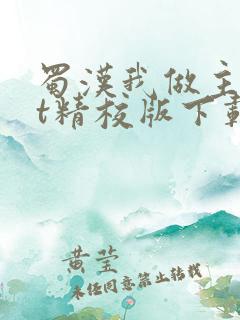 蜀漢我做主
t精校版下載
黄莹
未任同意禁止转载